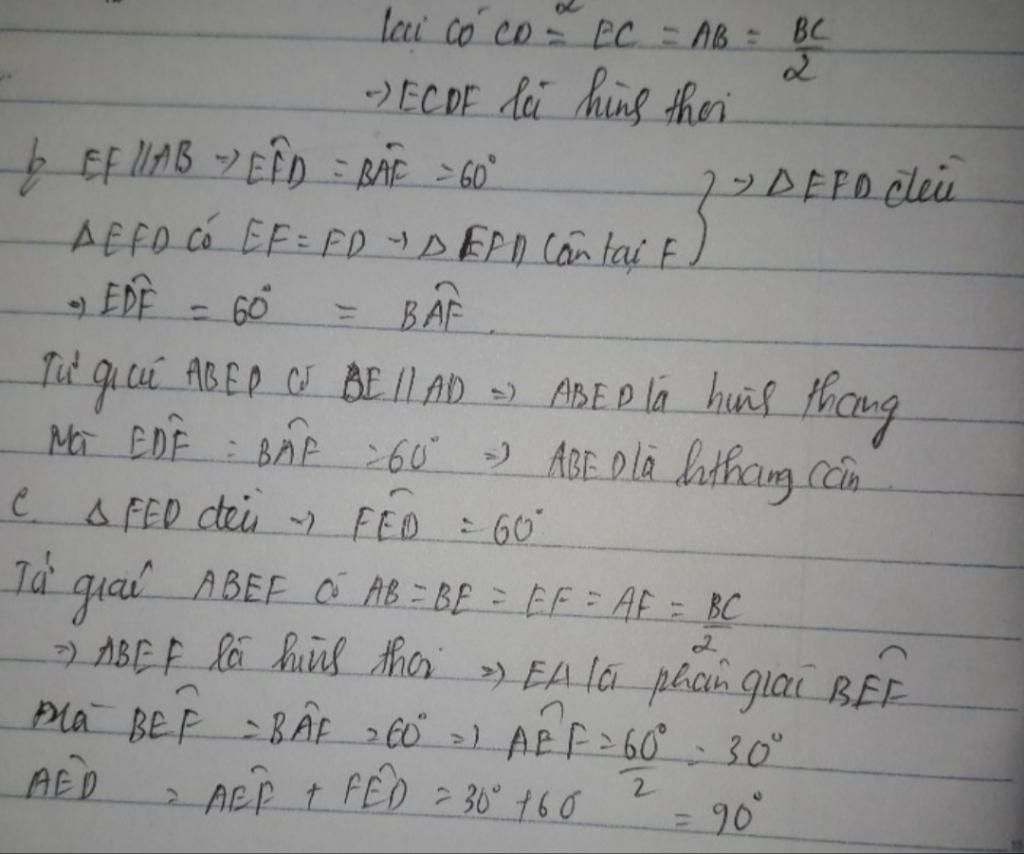 lại có CD = EC = AB = BC/2
→ ECDF là hình thoi
b EF // AB → EF̂D = BÂF = 60°
ΔEFD có EF = FD → Δ EFD cân tại F } → Δ EFD đều
⇒ ED̂F = 60° = BÂF.
Tứ giác ABED có BE // AD ⇒ ABED là hình thang
Mà ED̂F = BÂF = 60° ⇒ ABED là hthang cân
c. Δ FED đều → FÊD = 60°
Tứ giác ABEF có AB = BE = EF = AF = BC/2
⇒ ABEF là hình thoi ⇒ EA là phân giác BÊF
Mà BÊF = BÂF = 60° ⇒ AÊF = 60°/2 = 30°
AÊD = AÊF + FÊD = 30° + 60 = 90°